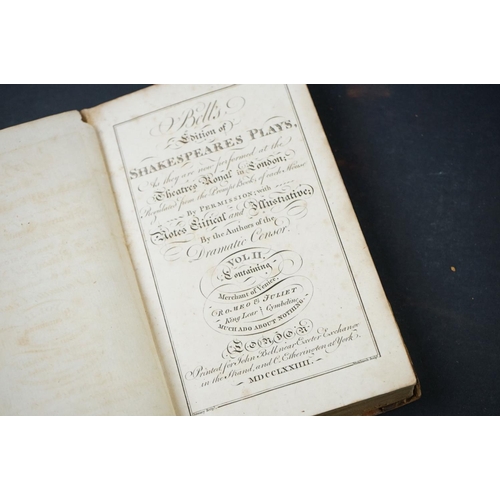 Bell's
Edition of
SHAKESPEARES PLAYS,
As they are now performed at the
Theatres Royal in London;
Regulated from the Prompt Books of each House
By PERMISSION; with
Notes Critical and Illustrative;
By the Authors of the
Dramatic Censor.
VOL II,
Containing
Merchant of Venice,
ROMEO & JULIET
King Lear Cymbeline
MUCH ADO ABOUT NOTHING.
LONDON
Printed for John Bell, near Exeter Exchange
in the Strand, and C. Etherington at York
MDCCLXXIIII.